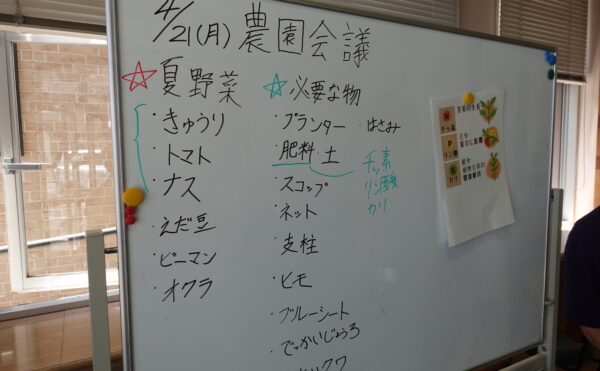 4/21(月) 農園会議
☆夏野菜
・きゅうり
・トマト
・ナス
・えだ豆
・ピーマン
・オクラ
☆必要な物
・プランター ・はさみ
・肥料・土
チッ素
リン酸
カリ
・スコップ
・ネット
・支柱
・ヒモ
・ブルーシート
・でっかいじょうろ
N
チッ素
P
リン酸
K
カリ